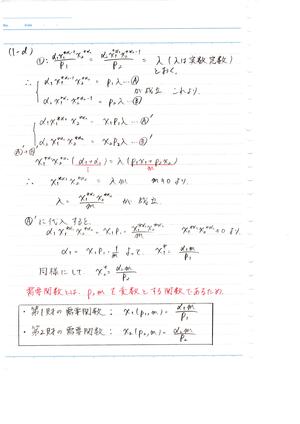 (1-d)
①: α₁x₁^{α₁-1}x₂^{α₂}/P₁ = α₂x₁^{α₁}x₂^{α₂-1}/P₂ = λ (λは実数定数)
とおく。
∴ { α₁x₁^{α₁-1}x₂^{α₂} = P₁λ … Ⓐ
α₂x₁^{α₁}x₂^{α₂-1} = P₂λ … Ⓑ が成立 これより,
{ α₁x₁^{α₁}x₂^{α₂} = x₁P₁λ … Ⓐ'
α₂x₁^{α₁}x₂^{α₂} = x₂P₂λ … Ⓑ'
Ⓐ'+Ⓑ'
x₁^{α₁}x₂^{α₂}(α₁+α₂) = λ(P₁x₁+P₂x₂)
1 m
∴ x₁^{α₁}x₂^{α₂} = λm m≠0 より,
λ = x₁^{α₁}x₂^{α₂}/m が成立
Ⓐ'に代入すると,
α₁x₁^{α₁}x₂^{α₂} = x₁P₁ · x₁^{α₁}x₂^{α₂}/m x₁^{α₁}x₂^{α₂}≠0 より
α₁ = x₁P₁ · 1/m よって x₁* = α₁m/P₁
同様にして x₂* = α₂m/P₂
需要関数とは, P, m を変数とする関数であるため,
・第1財の需要関数 : x₁(P₁,m) = α₁m/P₁
・第2財の需要関数 : x₂(P₂,m) = α₂m/P₂